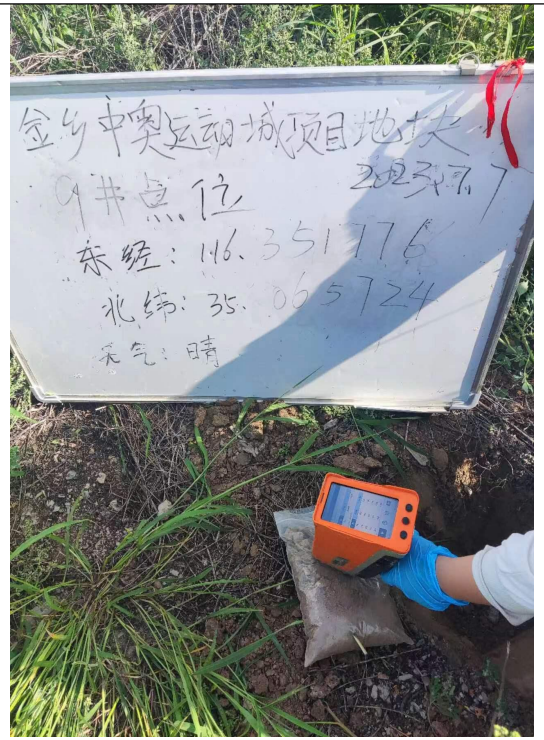 金乡中奥运动城项目地块
2023.7.7
9#点位
东经：116.351776
北纬：35.065724
天气：晴